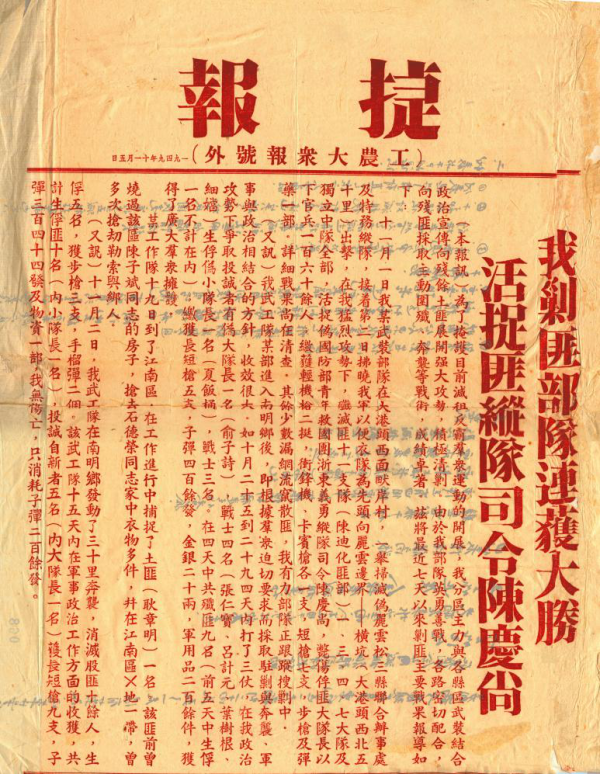 捷報
(工農大衆報號外)
一九四九年十一月五日
我剿匪部隊連獲大勝
活捉匪縱隊司令陳慶尚
(本報訊)為了掩護目前減租反霸羣衆運動的開展,我分區主力與各縣區武裝結合
政治宣傳向殘餘土匪展開强大攻勢,積極清剿。由於我部隊英勇善戰,各路密切配合,
向殘匪採取主動圍殲、奔襲等戰術,成績卓著,茲將最近七天以來剿匪主要戰果報導如
下:
十一月一日我某武裝部隊在大港頭西面畎岸村,一舉掃滅偽麗雲松三縣聯合辦事處
及特務縱隊,接着第二日拂曉我軍以便衣隊為先頭向麗雲邊界、橫坑(大港頭西北五
十里)出擊,在我猛烈攻勢下,殲滅匪十一支隊(陳迪化匪部)一、三、四、七大隊及
獨立中隊全部,活捉偽國防部青年救國團浙東義勇縱隊司令陳慶尚,斃傷俘匪大隊長以
下官兵一百六十餘人,繳獲輕機槍二挺,衝鋒機、卡賓槍各一支,短槍七支,步槍及彈
藥一部,詳細戰果尚在清查,其餘少數漏網流竄散匪,我有力部隊正跟蹤搜剿中。
(又訊)我武工隊某部進入南明鄉後,即根據羣衆迫切要求而採取駐剿與奔襲、軍
事與政治相結合的方針,收效很大,如十月二十五到二十九四天内打了三仗,在我政治
攻勢下爭取投誠者有偽大隊長一名(俞子詩),戰士四名(張仁寶、呂計元、葉樹根、
細癌)生俘偽小隊長一名(夏飯桶),戰士三名,在四天中共殲匪九名(前五天中生俘
一名不計在內)繳獲長短槍五支,子彈四百餘發,金銀二十兩,軍用品二百餘件,獲
得了廣大羣衆擁護。
某工作隊十九日到了江南區,在工作進行中捕捉了土匪(耿章明)一名,該匪前曾
燒過該區陳子斌同志的房子,搶去石德榮同志家中衣物多件,并在江南區×地一帶,曾
多次搶劫勒索與綁人。
(又訊)十一月二日,我武工隊在南明鄉發動了三十里奔襲,消滅股匪十餘人,生
俘五名,獲步槍三支,手榴彈一個,該武工隊十五天內在軍事政治工作方面的收獲,共
計生俘匪十名(內小隊長一名),投誠自新者五名(內大隊長一名)獲長短槍九支,子
彈三百四十四發及物資一部,我無傷亡,只消耗子彈二百餘發。